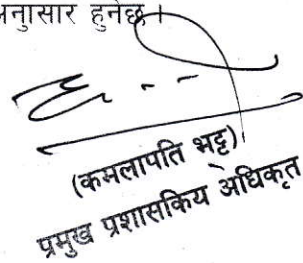 अनुसार हुनेछ।
(कमलापति भट्ट)
प्रमुख प्रशासकिय अधिकृत